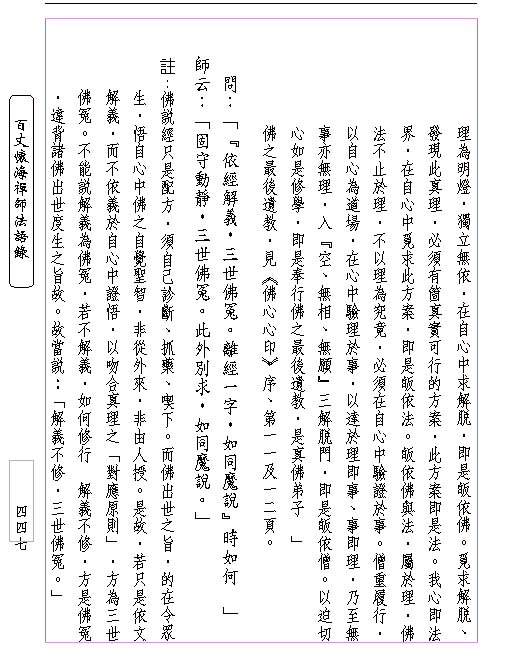 理為明燈，獨立無依，在自心中求解脫，即是皈依佛。覓求解脫、
發現此真理，必須有箇真實可行的方案，此方案即是法。我心即法
界，在自心中覓求此方案，即是皈依法。皈依佛與法，屬於理，佛
法不止於理，不以理為究竟，必須在自心中驗證於事。僧重履行，
以自心為道場，在心中驗理於事，以達於理即事、事即理，乃至無
事亦無理，入『空、無相、無願』三解脫門，即是皈依僧。以迫切
心如是修學，即是奉行佛之最後遺教，是真佛弟子　」
佛之最後遺教，見《佛心心印》序、第一一及一二頁。
問：「『依經解義，三世佛冤。離經一字，如同魔說』時如何　」
師云：「固守動靜，三世佛冤。此外別求，如同魔說。」
註：佛說經只是配方，須自己診斷、抓藥、喫下。而佛出世之旨，的在令眾
生，悟自心中佛之自覺聖智，非從外來，非由人授。是故，若只是依文
解義，而不依義於自心中證悟，以吻合真理之「對應原則」，方為三世
佛冤。不能說解義為佛冤，若不解義，如何修行　解義不修，方是佛冤
，違背諸佛出世度生之旨故。故當說：「解義不修，三世佛冤。」
百丈懷海禪師法語錄
四四七